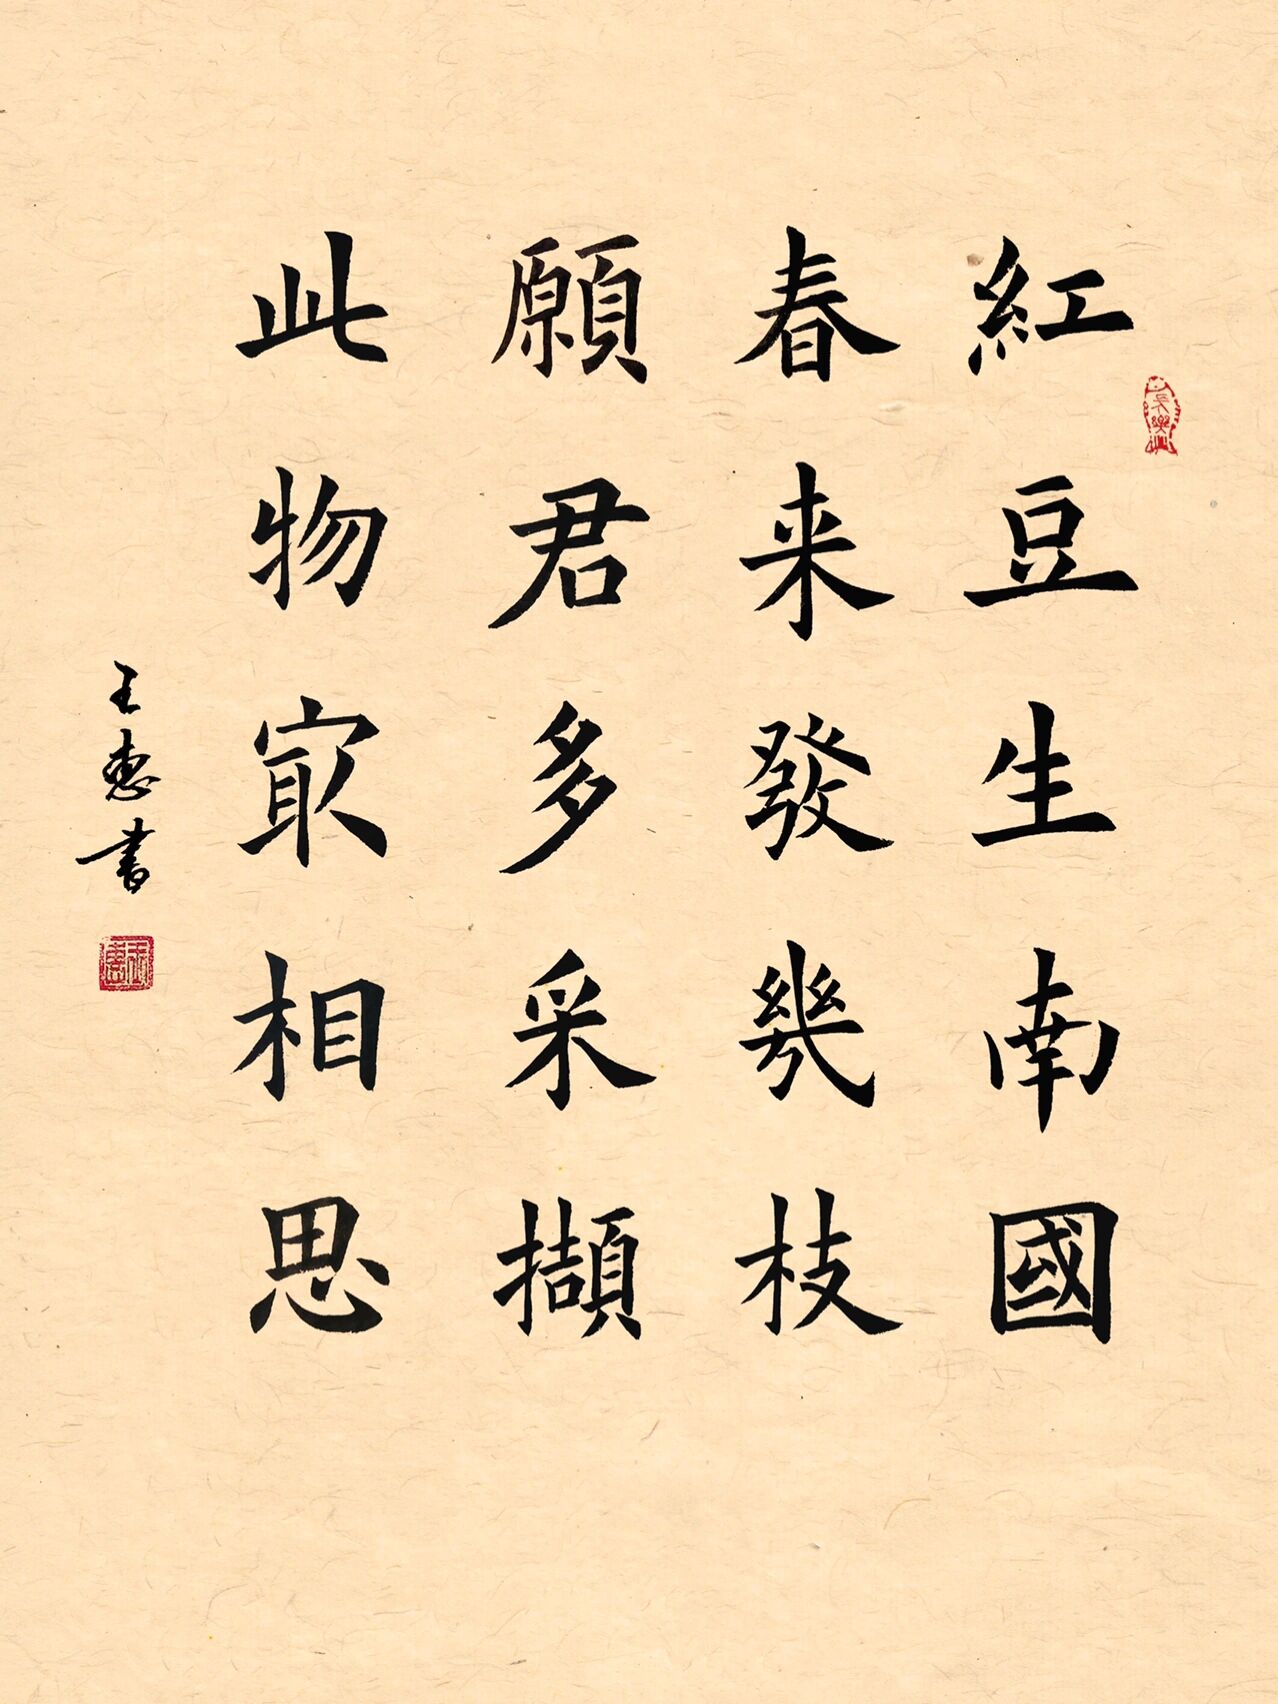 紅豆生南國
春来發幾枝
願君多采擷
此物冣相思
王惠書